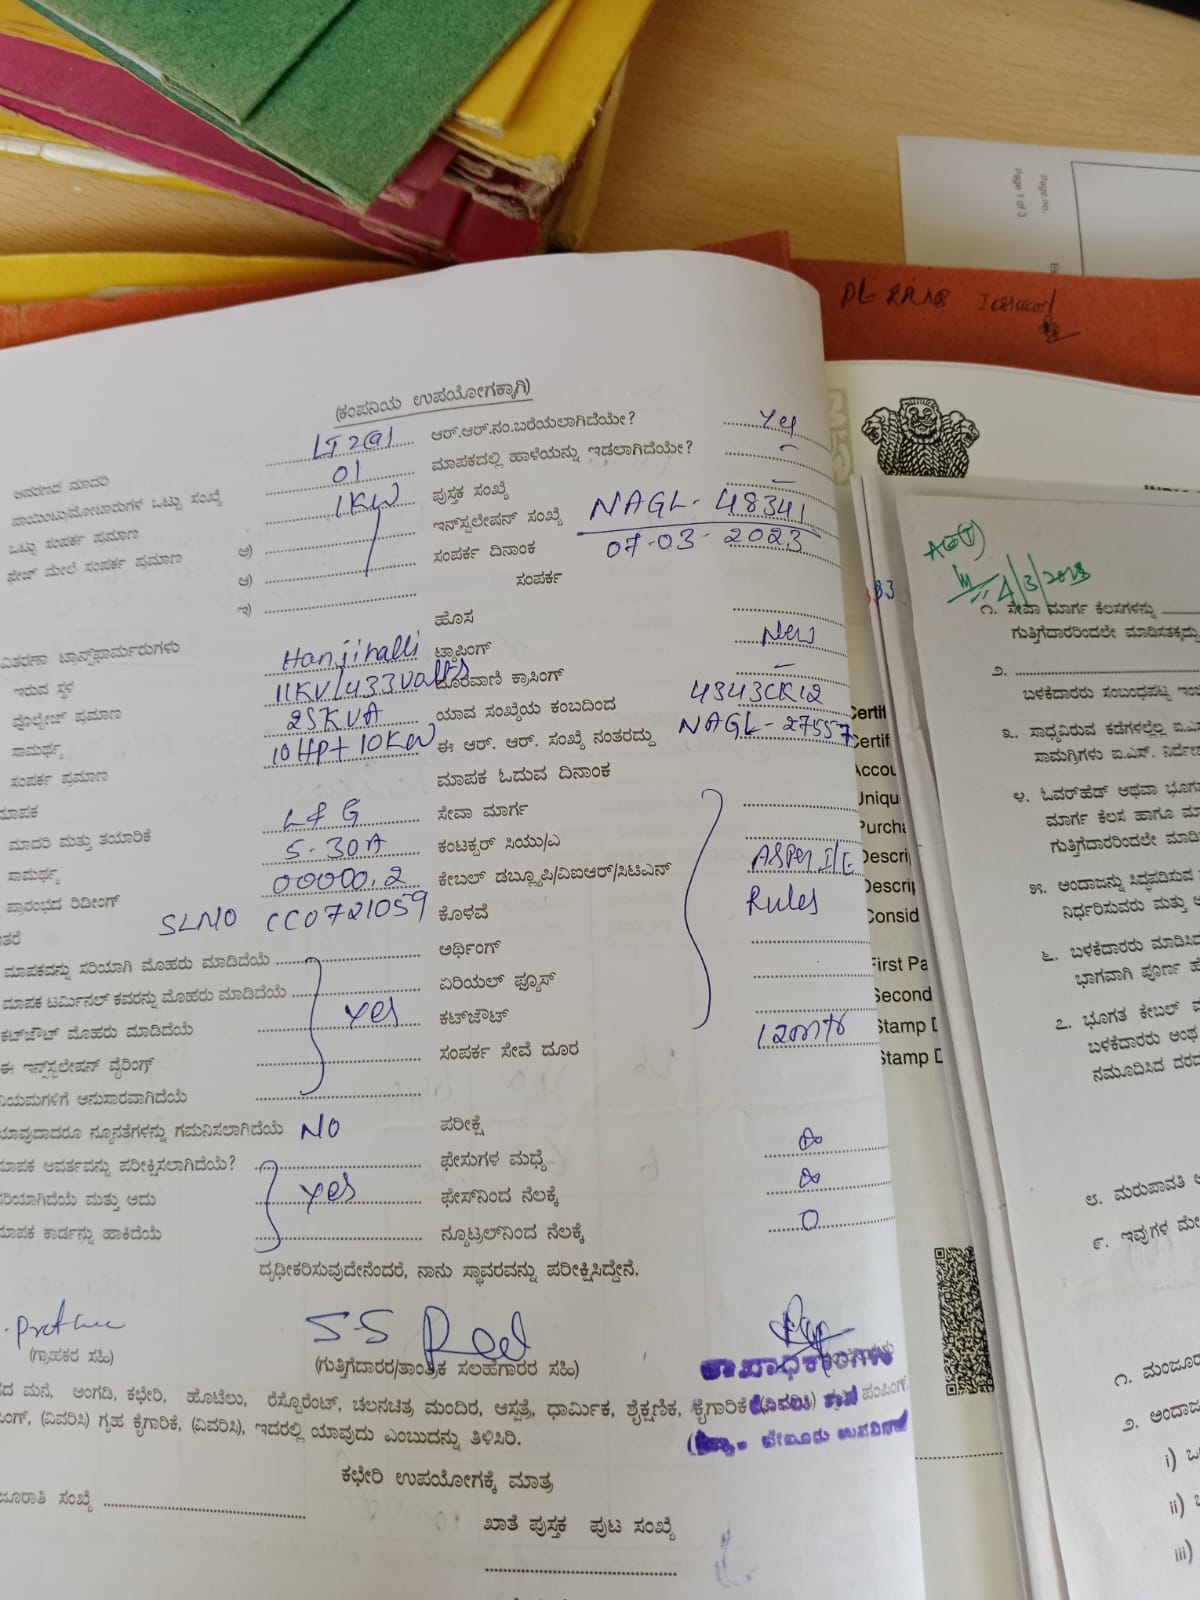 Page no.
Page 1 of 3
(ಕಂಪನಿಯ ಉಪಯೋಗಕ್ಕಾಗಿ)
ಆವರಣದ ಮಾದರಿ LT2a1 ಆರ್.ಆರ್.ನಂ.ಬರೆಯಲಾಗಿದೆಯೇ? Yes
ಪಾಯಿಂಟು/ಮೋಟಾರುಗಳ ಒಟ್ಟು ಸಂಖ್ಯೆ 01 ಮಾಪಕದಲ್ಲಿ ಹಾಳೆಯನ್ನು ಇಡಲಾಗಿದೆಯೇ? -
ಒಟ್ಟು ಸಂಪರ್ಕ ಪ್ರಮಾಣ 1KW ಪುಸ್ತಕ ಸಂಖ್ಯೆ -
ಫೇಜ್ ಮೇಲೆ ಸಂಪರ್ಕ ಪ್ರಮಾಣ ಅ) ಇನ್‌ಸ್ಟಲೇಷನ್ ಸಂಖ್ಯೆ NAGL - 48341
ಆ) ಸಂಪರ್ಕ ದಿನಾಂಕ 07-03-2023
ಇ) ಸಂಪರ್ಕ
ಹೊಸ
ವಿತರಣಾ ಟ್ರಾನ್ಸ್‌ಫಾರ್ಮರುಗಳು
ಇರುವ ಸ್ಥಳ Hanjihalli ಟ್ಯಾಪಿಂಗ್ New
ವೋಲ್ಟೇಜ್ ಪ್ರಮಾಣ 11KV/433Volts ದೂರವಾಣಿ ಕ್ರಾಸಿಂಗ್ -
ಸಾಮರ್ಥ್ಯ 25KVA ಯಾವ ಸಂಖ್ಯೆಯ ಕಂಬದಿಂದ 4343CK12
ಸಂಪರ್ಕ ಪ್ರಮಾಣ 10HP+10KW ಈ ಆರ್. ಆರ್. ಸಂಖ್ಯೆ ನಂತರದ್ದು NAGL-27557
ಮಾಪಕ ಮಾಪಕ ಓದುವ ದಿನಾಂಕ
ಮಾದರಿ ಮತ್ತು ತಯಾರಿಕೆ L&G ಸೇವಾ ಮಾರ್ಗ
ಸಾಮರ್ಥ್ಯ 5-30A ಕಂಟಕ್ಟರ್ ಸಿಯು/ಎ
ಪ್ರಾರಂಭದ ರಿಡೀಂಗ್ 00000.2 ಕೇಬಲ್ ಡಬ್ಲ್ಯೂಪಿ/ವಿಐಆರ್/ಸಿಟಿಎಸ್ ASPer I/E
ಇತರೆ SLNO CC0721059 ಕೊಳವೆ Rules
ಮಾಪಕವನ್ನು ಸರಿಯಾಗಿ ಮೊಹರು ಮಾಡಿದೆಯೆ ಅರ್ಥಿಂಗ್
ಮಾಪಕ ಟರ್ಮಿನಲ್ ಕವರನ್ನು ಮೊಹರು ಮಾಡಿದೆಯೆ ಏರಿಯಲ್ ಫ್ಯೂಸ್
ಕಟ್‌ಔಟ್ ಮೊಹರು ಮಾಡಿದೆಯೆ Yes ಕಟ್‌ಔಟ್
ಈ ಇನ್‌ಸ್ಟಲೇಷನ್ ವೈರಿಂಗ್ ಸಂಪರ್ಕ ಸೇವೆ ದೂರ
ನಿಯಮಗಳಿಗೆ ಅನುಸಾರವಾಗಿದೆಯೆ
ಯಾವುದಾದರೂ ನ್ಯೂನತೆಗಳನ್ನು ಗಮನಿಸಲಾಗಿದೆಯೆ NO ಪರೀಕ್ಷೆ
ಮಾಪಕ ಆವರ್ತವನ್ನು ಪರೀಕ್ಷಿಸಲಾಗಿದೆಯೆ? ಫೇಸುಗಳ ಮಧ್ಯೆ ∞
ಸರಿಯಾಗಿದೆಯೆ ಮತ್ತು ಅದು Yes ಫೇಸ್‌ನಿಂದ ನೆಲಕ್ಕೆ ∞
ಮಾಪಕ ಕಾರ್ಡನ್ನು ಹಾಕಿದೆಯೆ ನ್ಯೂಟ್ರಲ್‌ನಿಂದ ನೆಲಕ್ಕೆ 0
ದೃಢೀಕರಿಸುವುದೇನೆಂದರೆ, ನಾನು ಸ್ಥಾವರವನ್ನು ಪರೀಕ್ಷಿಸಿದ್ದೇನೆ.
(ಗ್ರಾಹಕರ ಸಹಿ) (ಗುತ್ತಿಗೆದಾರರ/ತಾಂತ್ರಿಕ ಸಲಹೆಗಾರರ ಸಹಿ)
ದ ಮನೆ, ಅಂಗಡಿ, ಕಛೇರಿ, ಹೊಟೆಲು, ರೆಸ್ಟೊರೆಂಟ್, ಚಲನಚಿತ್ರ ಮಂದಿರ, ಆಸ್ಪತ್ರೆ, ಧಾರ್ಮಿಕ, ಶೈಕ್ಷಣಿಕ, ಕೈಗಾರಿಕೆ (ವಿವರಿಸಿ) ಪಂಪಿಂಗ್
ಂಗ್, (ವಿವರಿಸಿ) ಗೃಹ ಕೈಗಾರಿಕೆ, (ವಿವರಿಸಿ), ಇದರಲ್ಲಿ ಯಾವುದು ಎಂಬುದನ್ನು ತಿಳಿಸಿರಿ.
ಕಛೇರಿ ಉಪಯೋಗಕ್ಕೆ ಮಾತ್ರ
ಜೂರಾತಿ ಸಂಖ್ಯೆ
ಖಾತೆ ಪುಸ್ತಕ ಪುಟ ಸಂಖ್ಯೆ
Certif
Certif
Accou
Uniqu
Purcha
Descri
Descrip
Consid
First Pa
Second
Stamp D
Stamp D
೧. ಸೇವಾ ಮಾರ್ಗ ಕೆಲಸಗಳನ್ನು
ಗುತ್ತಿಗೆದಾರರಿಂದಲೇ ಮಾಡಿಸತಕ್ಕದ್ದು
೨.
ಬಳಕೆದಾರರು ಸಂಬಂಧಪಟ್ಟ ಇಂ
೩. ಸಾಧ್ಯವಿರುವ ಕಡೆಗಳಲ್ಲೆಲ್ಲ ಐ.ಎ
ಸಾಮಗ್ರಿಗಳು ಐ.ಎಸ್. ನಿರ್ದೇ
೪. ಓವರ್‌ಹೆಡ್ ಅಥವಾ ಭೂಗ
ಮಾರ್ಗ ಕೆಲಸ ಹಾಗೂ ಮಾ
ಗುತ್ತಿಗೆದಾರರಿಂದಲೇ ಮಾಡಿ
೫. ಅಂದಾಜನ್ನು ಸಿದ್ಧಪಡಿಸುವ
ನಿರ್ಧರಿಸುವರು ಮತ್ತು
೬. ಬಳಕೆದಾರರು ಮಾಡಿಸಿದ
ಭಾಗವಾಗಿ ಪೂರ್ಣ ಹೆ
೭. ಭೂಗತ ಕೇಬಲ್
ಬಳಕೆದಾರರು ಅಂಥ
ನಮೂದಿಸಿದ ದರದ
೮. ಮರುಪಾವತಿ
೯. ಇವುಗಳ ಮೇ
೧. ಮಂಜೂರಾ
೨. ಅಂದಾಜ
i)
ii)
iii)